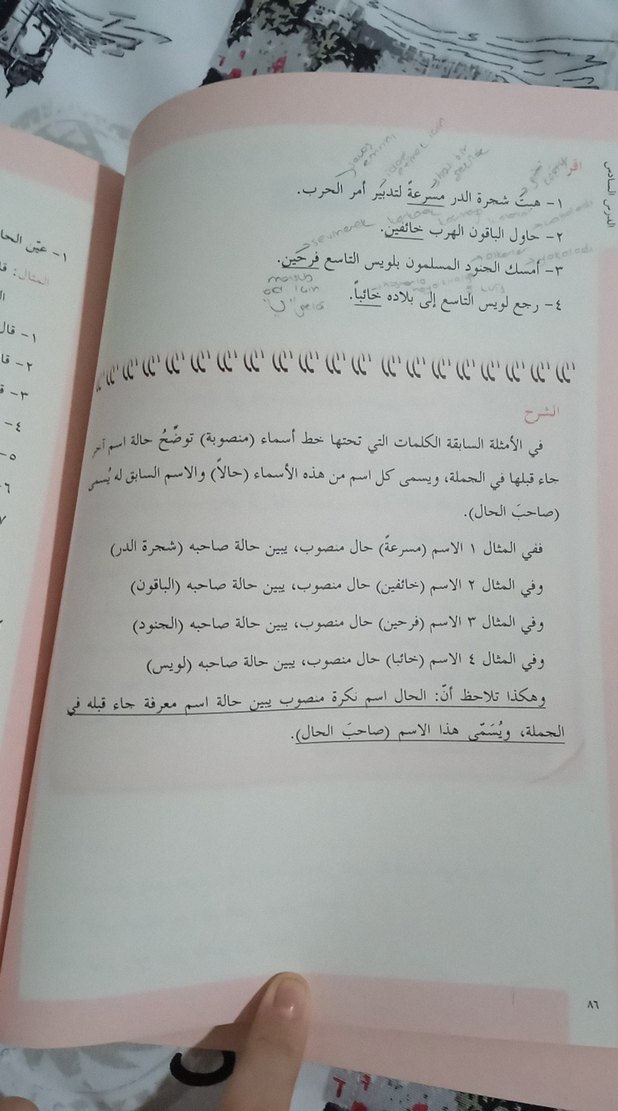 الدرس السادس
اقر
١- هبتْ شجرة الدر مسرعةً لتدبير أمر الحرب.
٢- حاول الباقون الهرب خائفين.
٣- أمسك الجنود المسلمون بلويس التاسع فرحين.
٤- رجع لويس التاسع إلى بلاده خائباً.
الشرح
في الأمثلة السابقة الكلمات التي تحتها خط أسماء (منصوبة) توضّحُ حالة اسم آخر
جاء قبلها في الجملة، ويسمى كل اسم من هذه الأسماء (حالاً) والاسم السابق له يُسمى
(صاحبَ الحال).
ففي المثال ١ الاسم (مسرعةً) حال منصوب، يبين حالة صاحبه (شجرة الدر)
وفي المثال ٢ الاسم (خائفين) حال منصوب، يبين حالة صاحبه (الباقون)
وفي المثال ٣ الاسم (فرحين) حال منصوب، يبين حالة صاحبه (الجنود)
وفي المثال ٤ الاسم (خائبا) حال منصوب، يبين حالة صاحبه (لويس)
وهكذا تلاحظ أنّ: الحال اسم نكرة منصوب يبين حالة اسم معرفة جاء قبله في
الجملة، ويُسَمّى هذا الاسم (صاحبَ الحال).
٨٦
١- عيّن الحا
المثال: قا
١- قال
٢- قا
٣- ق
٤-
٥-
٦
٧